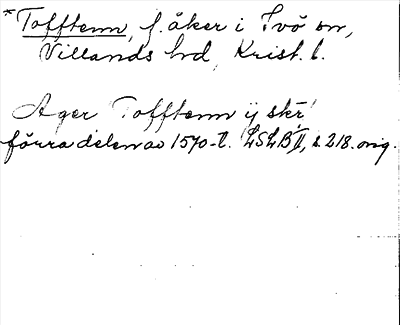 *Tofftenn, f. åker i Ivö sn,
Villands hrd, Krist. l.
Ager Tofftenn ÿ skr!
förra delen av 1570-t. LSLB II, s 218. orig.